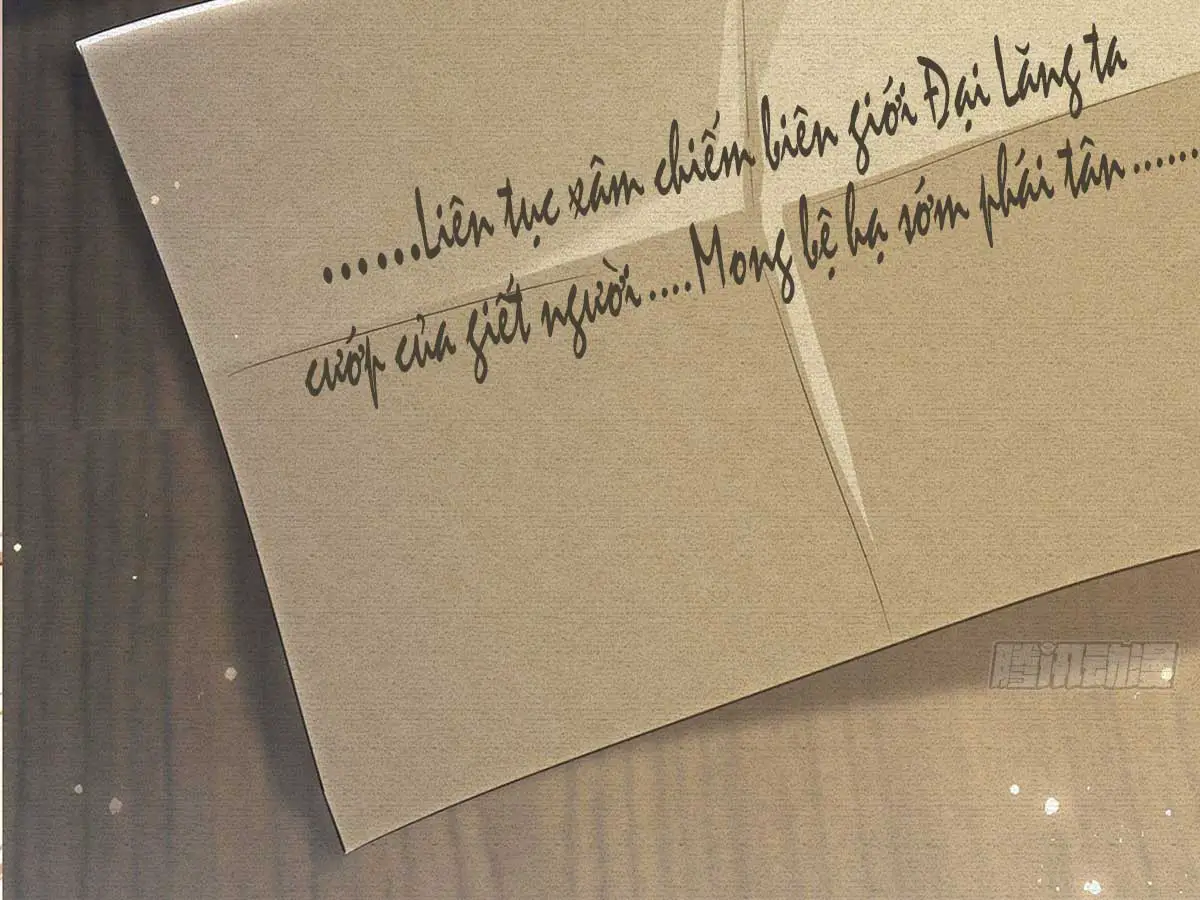 ......Liên tục xâm chiếm biên giới Đại Lăng ta
cướp của giết người....Mong bệ hạ sớm phái tân......
腾讯动漫